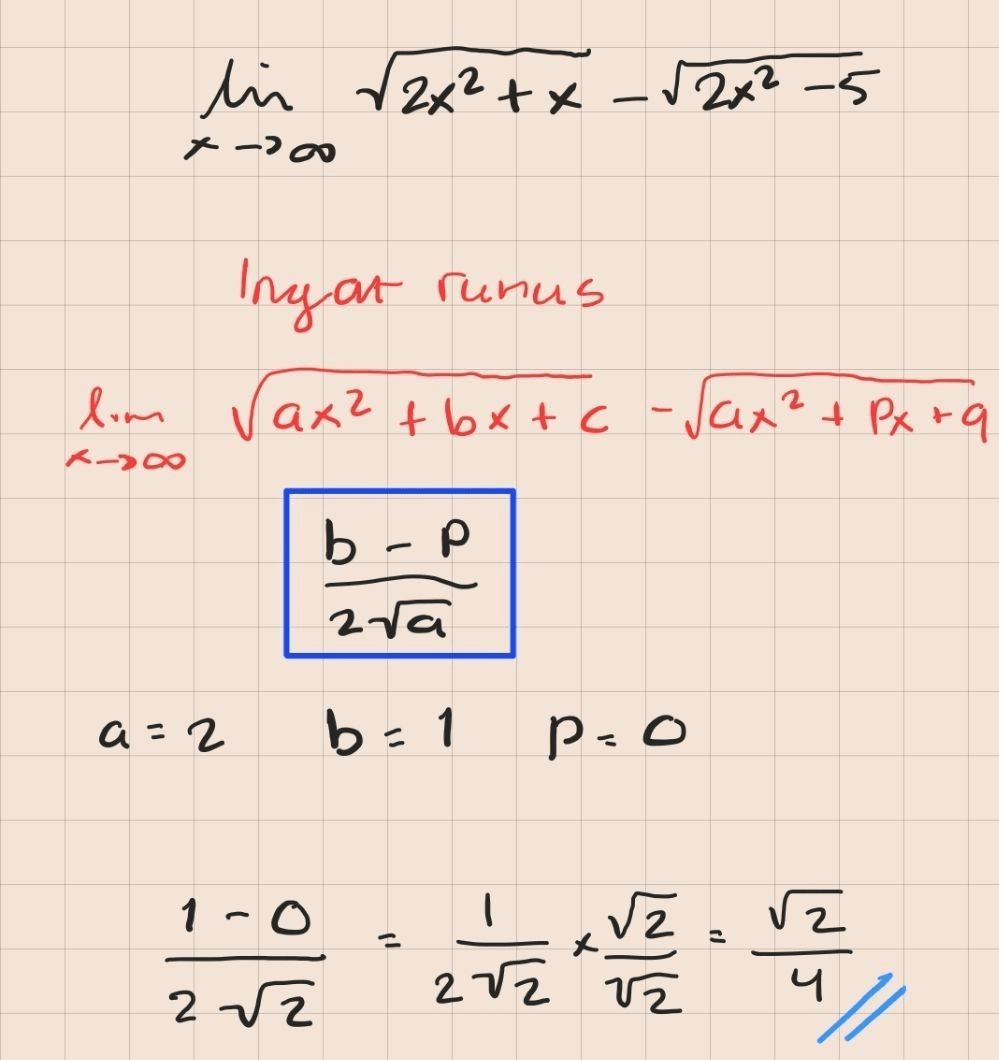 lim √(2x² + x) − √(2x² − 5)
x → ∞
Ingat rumus
lim √(ax² + bx + c) − √(ax² + px + q)
x → ∞
(b − p)/(2√a)
a = 2 b = 1 p = 0
(1 − 0)/(2√2) = 1/(2√2) × √2/√2 = √2/4